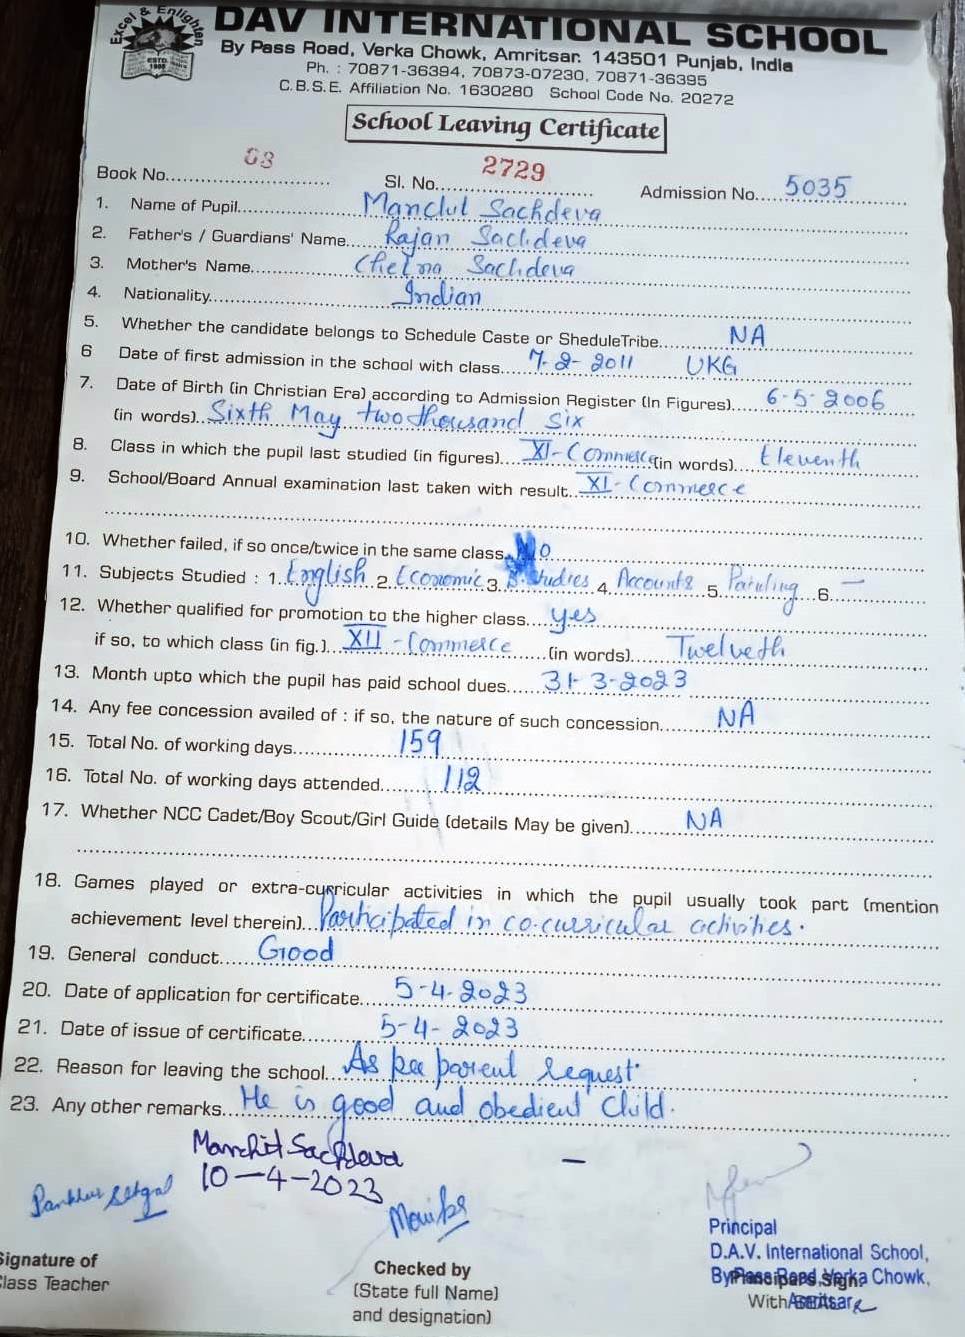 Excel & Enlighten
ESTD.
DAV INTERNATIONAL SCHOOL
By Pass Road, Verka Chowk, Amritsar. 143501 Punjab, India
Ph. : 70871-36394, 70873-07230, 70871-36395
C.B.S.E. Affiliation No. 1630280 School Code No. 20272
School Leaving Certificate
Book No. 03 Sl. No. 2729 Admission No. 5035
1. Name of Pupil Sachdeva
2. Father's / Guardians' Name Rajan Sachdeva
3. Mother's Name Sachdeva
4. Nationality Indian
5. Whether the candidate belongs to Schedule Caste or SheduleTribe NA
6 Date of first admission in the school with class 7-2-2011 UKG
7. Date of Birth (in Christian Era) according to Admission Register (In Figures) 6-5-2006
(in words) Sixth May two thousand six
8. Class in which the pupil last studied (in figures) XI-Commerce (in words) Eleventh
9. School/Board Annual examination last taken with result XI-Commerce
10. Whether failed, if so once/twice in the same class No
11. Subjects Studied : 1. English 2. Economic 3. B. Studies 4. Accounts 5. Painting 6. —
12. Whether qualified for promotion to the higher class yes
if so, to which class (in fig.) XII-Commerce (in words) Twelveth
13. Month upto which the pupil has paid school dues 31-3-2023
14. Any fee concession availed of : if so, the nature of such concession NA
15. Total No. of working days 159
16. Total No. of working days attended 112
17. Whether NCC Cadet/Boy Scout/Girl Guide (details May be given) NA
18. Games played or extra-curricular activities in which the pupil usually took part (mention
achievement level therein) Participated in co-curricular activities.
19. General conduct Good
20. Date of application for certificate 5-4-2023
21. Date of issue of certificate 5-4-2023
22. Reason for leaving the school As per parent request
23. Any other remarks He is good and obedient Child.
Sachdeva —
10-4-2023
Principal
D.A.V. International School,
Signature of Checked by By Pass Road, Verka Chowk,
Class Teacher (State full Name) With Amritsar
and designation)